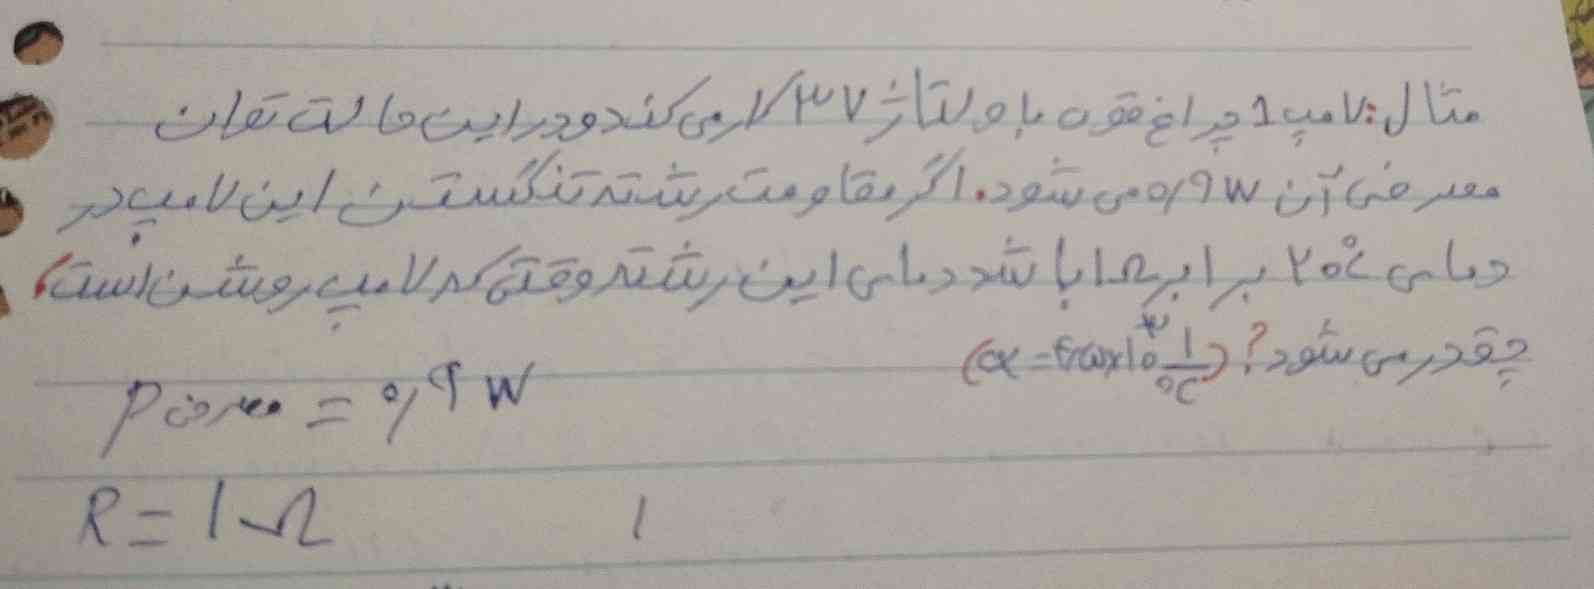 مثال: لامپ 1 چراغ قوه با ولتاژ ۳۷ کار می کند و در این حالت توان
مصرفی آن ۰٫۹ W می شود. اگر مقاومت رشته تنگستن این لامپ در
دمای ۲۰°C برابر ۱Ω باشد دمای این رشته وقتی که لامپ روشن است،
چقدر می شود؟ (α = ۴٫۵×۱۰⁻³ 1/°C)
P مصرفی = ۰٫۹ W
R = ۱Ω